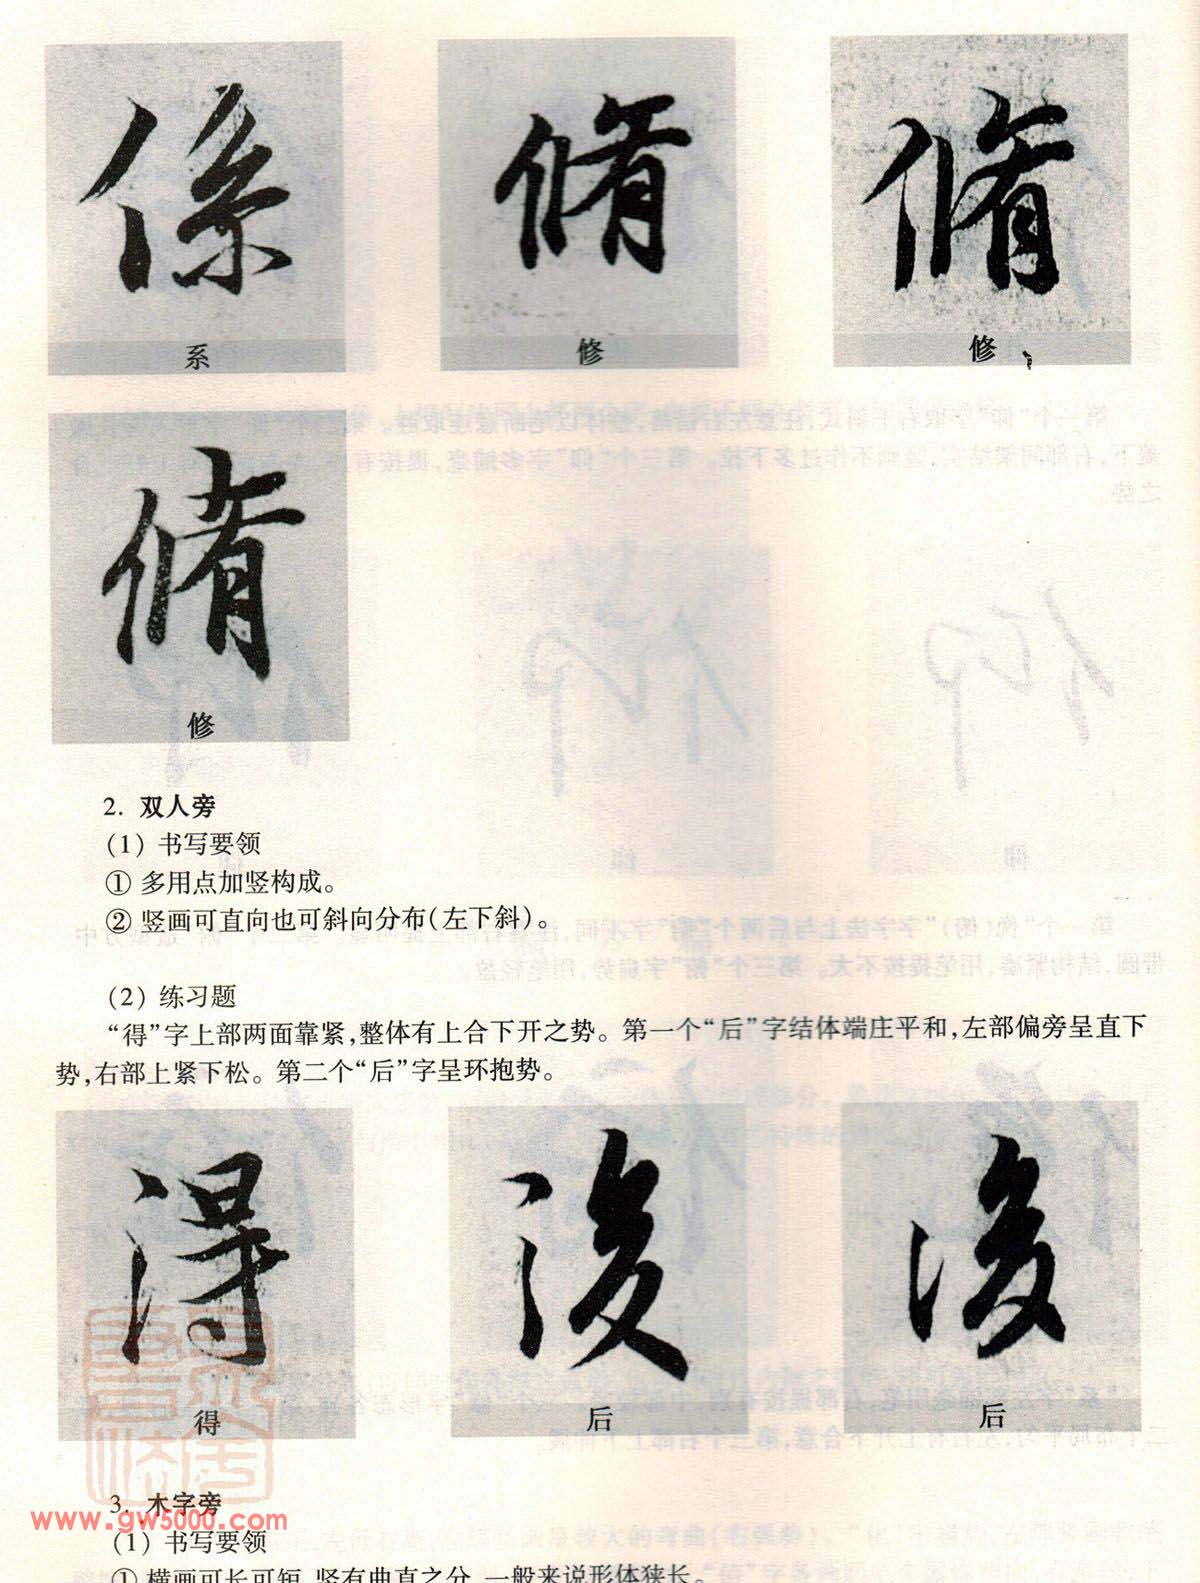 係 脩 脩
系 修 修
脩
修
2. 双人旁
(1) 书写要领
① 多用点加竖构成。
② 竖画可直向也可斜向分布(左下斜)。
(2) 练习题
“得”字上部两面靠紧,整体有上合下开之势。第一个“后”字结体端庄平和,左部偏旁呈直下
势,右部上紧下松。第二个“后”字呈环抱势。
得 後 後
得 后 后
3. 木字旁
www.gw5000.com
(1) 书写要领
① 横画可长可短,竖有曲直之分,一般来说形体狭长。